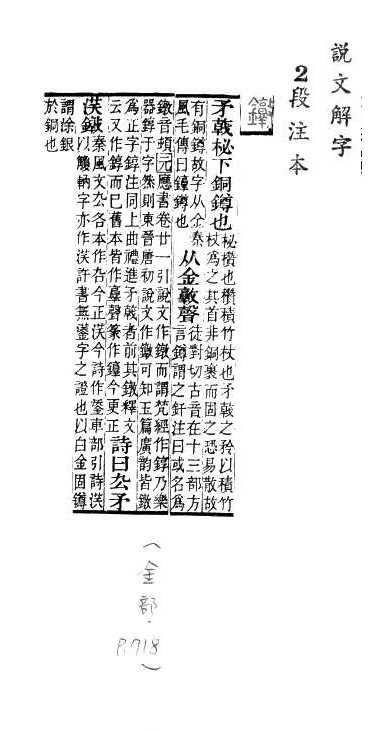 說文解字
2段注本
矛戟柲下銅鐏也
柲欑也欑積竹杖也矛戟之矜以積竹
杖爲之其首非銅裹而固之恐易散故
有銅鐏故字从金秦
風毛傳曰錞鐏也
从金敦聲
徒對切古音在十三部方
言鐏謂之釬注曰或名爲
鐓音頓元應書卷廿一引說文作鐓而謂梵經作錞乃樂
器錞于字然則東晉唐初說文作鐓可知玉篇廣韵皆鐓
爲正字錞注同上曲禮進矛戟者前其鐓釋文
云又作錞而巳舊本皆作𦎧聲篆作錞今更正
詩曰厹矛
沃鐓
秦風文厹各本作叴今正沃今詩作鋈車部引詩沃
以觼軜字亦作沃許書無鋈字之證也以白金固鐏
謂涂銀
於銅也
(金部.
P.718)